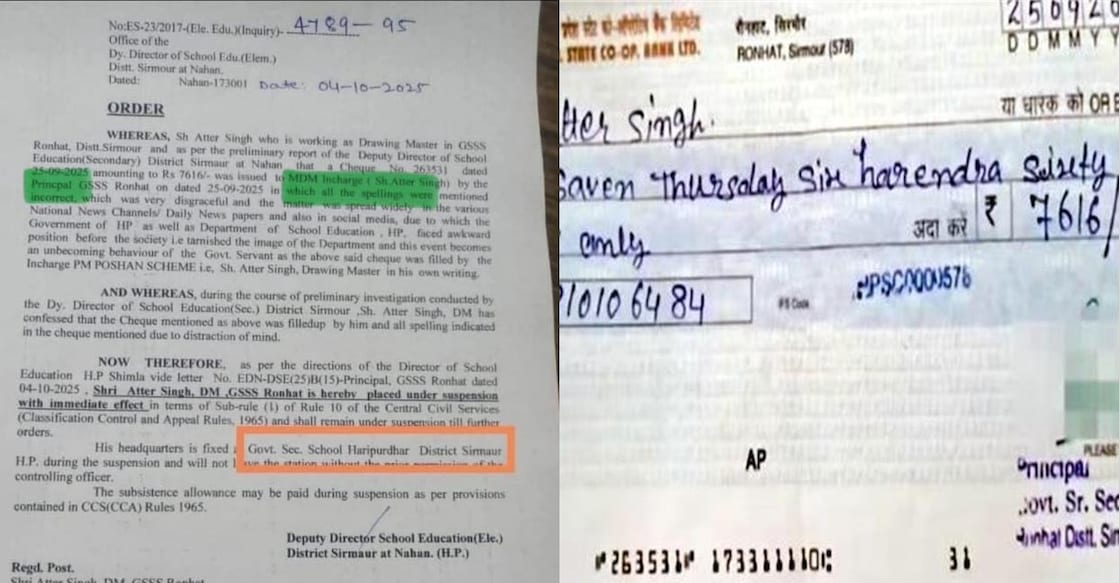 No:ES-23/2017-(Ele. Edu.)(Inquiry)- 4789-95
Office of the
Dy. Director of School Edu.(Elem.)
Distt. Sirmour at Nahan.
Dated: Nahan-173001 Date: 04-10-2025
ORDER
WHEREAS, Sh Atter Singh who is working as Drawing Master in GSSS
Ronhat, Distt.Sirmour and as per the preliminary report of the Deputy Director of School
Education(Secondary) District Sirmaur at Nahan that a Cheque No 263531 dated
25-09-2025 amounting to Rs 7616/- was issued to MDM Incharge ( Sh.Atter Singh) by the
Princpal GSSS Ronhat on dated 25-09-2025 in which all the spellings were mentioned
incorrect, which was very disgraceful and the matter was spread widely in the various
National News Channels/ Daily News papers and also in social media, due to which the
Government of HP as well as Department of School Education , HP, faced awkward
position before the society i.e tarnished the image of the Department and this event becomes
an unbecoming behaviour of the Govt. Servant as the above said cheque was filled by the
Incharge PM POSHAN SCHEME i.e, Sh. Atter Singh, Drawing Master in his own writing.
AND WHEREAS, during the course of preliminary investigation conducted by
the Dy. Director of School Education(Sec.) District Sirmour ,Sh. Atter Singh, DM has
confessed that the Cheque mentioned as above was filledup by him and all spelling indicated
in the cheque mentioned due to distraction of mind.
NOW THEREFORE, as per the directions of the Director of School
Education H.P Shimla vide letter No. EDN-DSE(25)B(15)-Principal, GSSS Ronhat dated
04-10-2025 , Shri Atter Singh, DM ,GSSS Ronhat is hereby placed under suspension
with immediate effect in terms of Sub-rule (1) of Rule 10 of the Central Civil Services
(Classification Control and Appeal Rules, 1965) and shall remain under suspension till further
orders.
His headquarters is fixed Govt. Sec. School Haripurdhar District Sirmaur
H.P. during the suspension and will not the station without the prior permission of the
controlling officer.
The subsistence allowance may be paid during suspension as per provisions
contained in CCS(CCA) Rules 1965.
Deputy Director School Education(Ele.)
District Sirmaur at Nahan. (H.P.)
Regd. Post.
Shri Atter Singh, DM GSSS Ronhat
को-ऑपरेटिव बैंक लिमिटेड
STATE CO-OP. BANK LTD.
रोनहाट, सिरमौर
RONHAT, Sirmour (578)
250920
D D M M Y Y
tter Singh.
या धारक को OR B
Saven Thursday Six harendra Sixty
only
अदा करें ₹ 7616/
10106484
HPSC0000578
AP
PLEASE
Principal
Govt. Sr. Sec
Ronhat Distt. Sir
263531 173311110 31